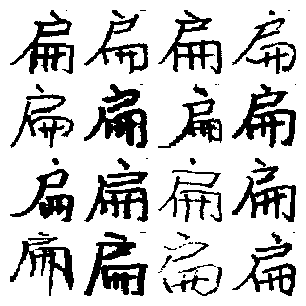 扁扁扁扁
扁扁扁扁
扁扁扁扁
扁扁扁扁